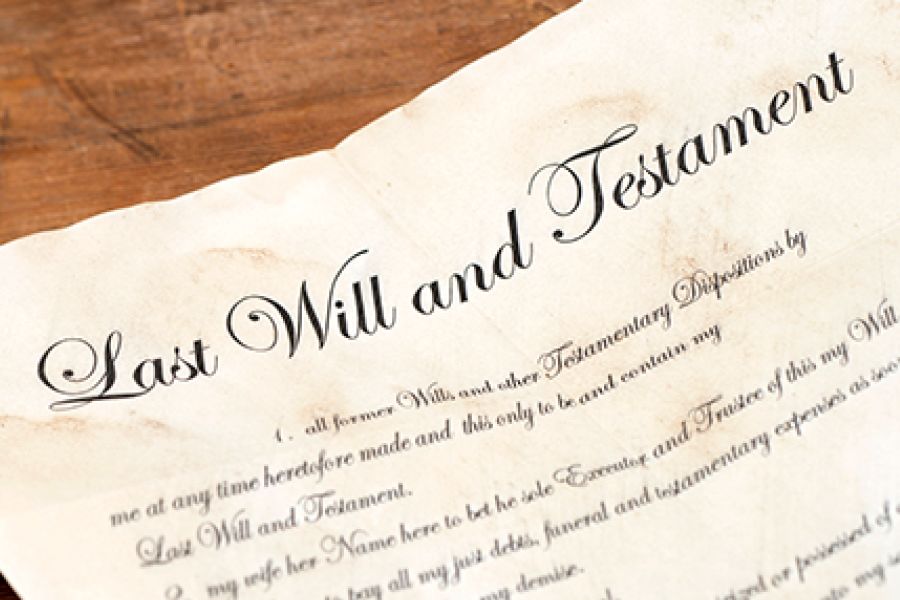 Last Will and Testament
1. all former Wills and other Testamentary Dispositions by
me at any time heretofore made and this only to be and contain my
Last Will and Testament.
2. my wife her Name here to bet he sole Executor and Trustee of this my Will
to pay all my just debts, funeral and testamentary expenses as soon
my demise.
or possessed of